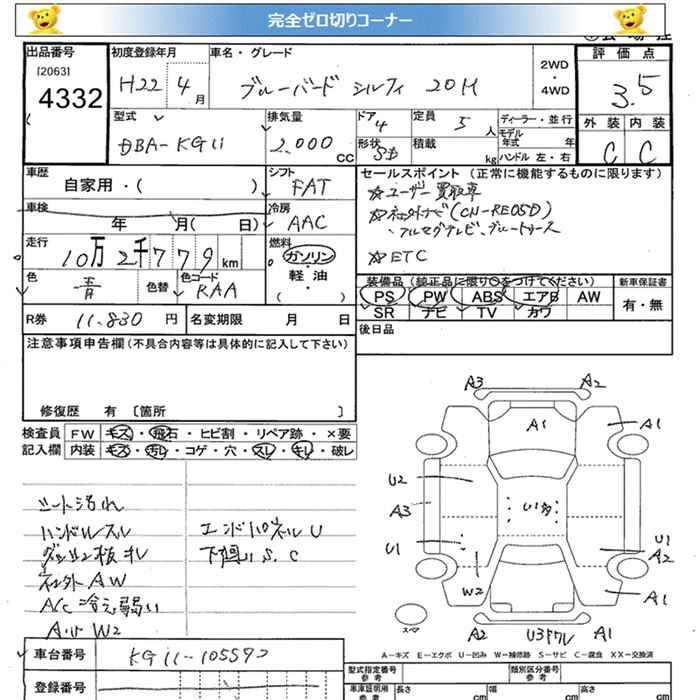 完全ゼロ切りコーナー
出品番号 初度登録年月 車名・グレード 評価点
[2063]
4332 H22 4月 ブルーバード シルフィ 20M 2WD・4WD 3.5
型式 排気量 ドア 定員 ディーラー・並行 外装 内装
DBA-KG11 2,000 CC 4 5人 モデル年式 年 C C
形状 積載 kg ハンドル 左・右
車歴 シフト セールスポイント (正常に機能するものに限ります)
自家用・( ) FAT ☆ユーザー買取車
車検 冷房 ☆社外ナビ(CN-RE05D)
年 月( 日) AAC ・フルセグテレビ、ブルートゥース
走行 燃料 ☆ETC
10万2千779km ガソリン
軽・油
・( )
色 色替 色コード 装備品 (純正品に限り○をつけてください) 新車保証書
青 RAA PS PW ABS エアB AW 有・無
SR ナビ TV カワ
R券 11,830 円 名変期限 月 日 後日品
注意事項申告欄 (不具合内容等は具体的に記入して下さい)
修復歴 有 [箇所 ]
検査員 FW キズ・飛石・ヒビ割・リペア跡・×要
記入欄 内装 キズ・汚レ・コゲ・穴・スレ・キレ・破レ
シート汚れ
ハンドルスレ エンドパネル U
ダッシュ板キレ 下廻りS、C
社外AW
A/C冷え弱い
W2
A3 A2
A1 A1
U2
A3 U1多
U1 U1
A2
W2 A1
スペア
A2 A1
A-キズ E-エクボ U-凹み W-補修跡 S-サビ C-腐食 XX-交換済
車台番号 KG11-105592
登録番号
型式指定番号 参考 類別区分番号 参考
車庫証明用 参考 長さ cm 幅 cm 高さ cm